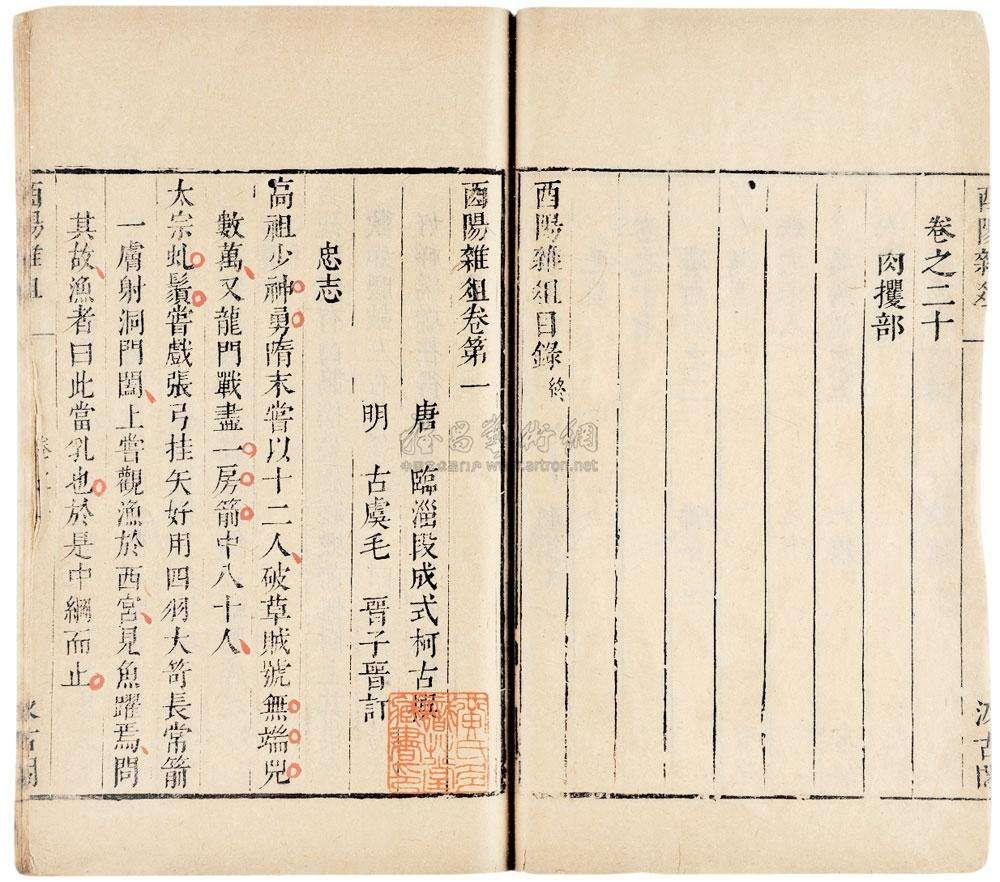 卷之二十
肉攫部
酉陽雜俎目錄終
酉陽雜俎卷第一
唐 臨淄段成式柯古撰
明 古虞毛 晉子晉訂
忠志
高祖少神勇隋末嘗以十二人破草賊號無端兒
數萬又龍門戰盡一房箭中八十人
太宗虬鬚嘗戲張弓挂矢好用四羽大笴長常箭
一膚射洞門闔上嘗觀漁於西宮見魚躍焉問
其故漁者曰此當乳也於是中網而止
酉陽雜俎 一
www.artron.net